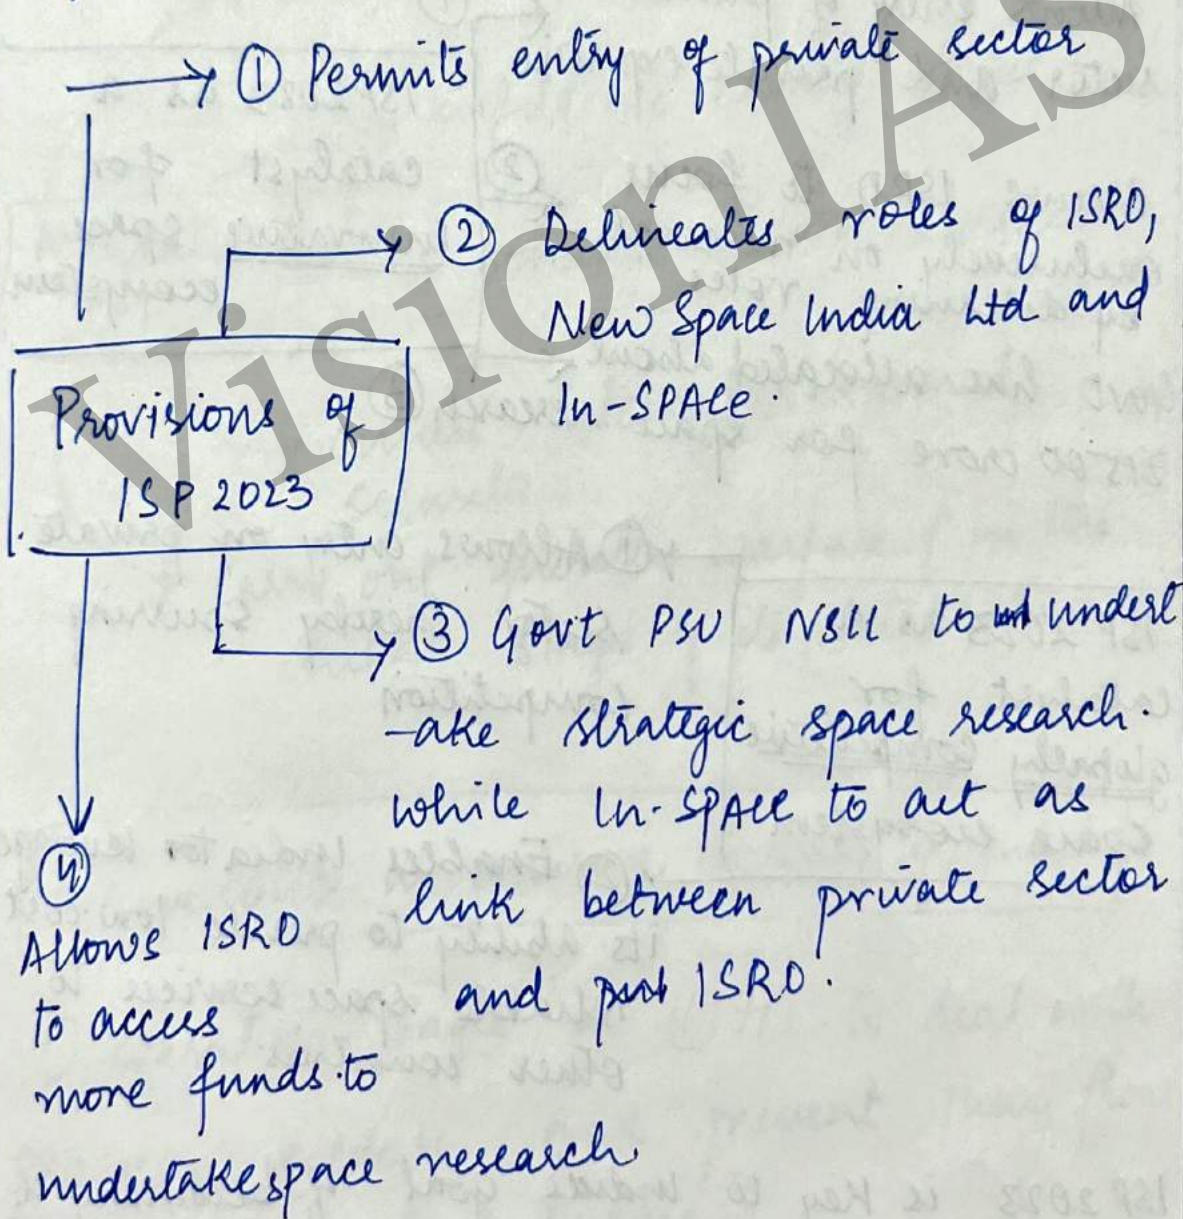 ① Permits entry of private sector
② Delineates roles of ISRO,
New Space India Ltd and
In-SPACe.
Provisions of
ISP 2023
③ Govt PSU NSIL to undert
-ake strategic space research.
while In-SPACe to act as
link between private sector
and ISRO.
④
Allows ISRO
to access
more funds to
undertake space research.
VisionIAS